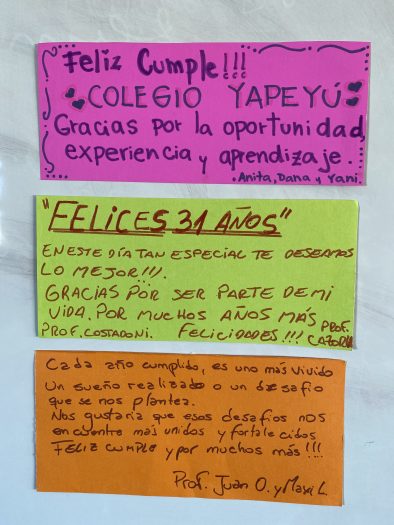 Feliz Cumple!!!
COLEGIO YAPEYÚ
Gracias por la oportunidad,
experiencia y aprendizaje.
.Anita, Dana y Yani.
"FELICES 31 AÑOS"
EN ESTE DÍA TAN ESPECIAL TE DESEAMOS
LO MEJOR!!!.
GRACIAS POR SER PARTE DE MI
VIDA. POR MUCHOS AÑOS MÁS
PROF. COSTADONI. FELICIDADES!!! PROF. CAZORLA
Cada año cumplido, es uno más vivido
Un sueño realizado o un desafio
que se nos plantea.
Nos gustaria que esos desafios nos
encuentre más unidos y fortalecidos
FELIZ CUMPLE y por muchos más!!!
Prof. Juan O. y Maxi L.